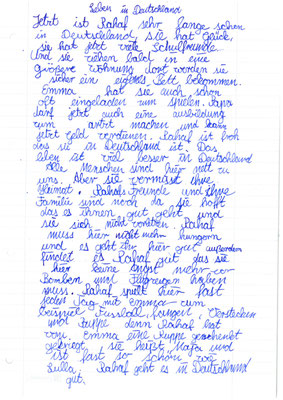 Leben in Deutschland
Jetzt ist Rahaf sehr lange schon
in Deutschland, sie hat Glück,
sie hat jetzt viele Schulfreunde
Und sie ziehen bald in eine
größere Wohnung dort werden sie
sicher ein eigenes Bett bekommen
Emma hat sie auch schon
oft eingeladen zum spielen. Papa
darf jetzt auch eine ausbildung
zum machen und kann
jetzt Geld verdienen. Rahaf ist froh
das sie in Deutschland ist. Das
leben ist viel besser in Deutschland
Alle Menschen sind hier nett zu
uns. Aber sie vermisst ihre
Heimat. Rahafs Freunde und ihre
Familie sind noch da sie hofft
das es ihnen gut geht und
sie sich nicht Rahaf
muss hier nicht mehr hungern
und es geht ihr hier gut außerdem
findet es Rahaf gut das sie
hier keine Angst mehr vor
Bomben und Flugzeugen haben
muss. Rahaf spielt hier fast
jeden Tag mit Emma zum
beispiel Fussball, fangen, Verstecken
und Puppe denn Rahaf hat
von Emma eine Puppe geschenkt
gekriegt, sie heißt und
ist fast so schön wie
Lulla, Rahaf geht es in Deutschland
gut.